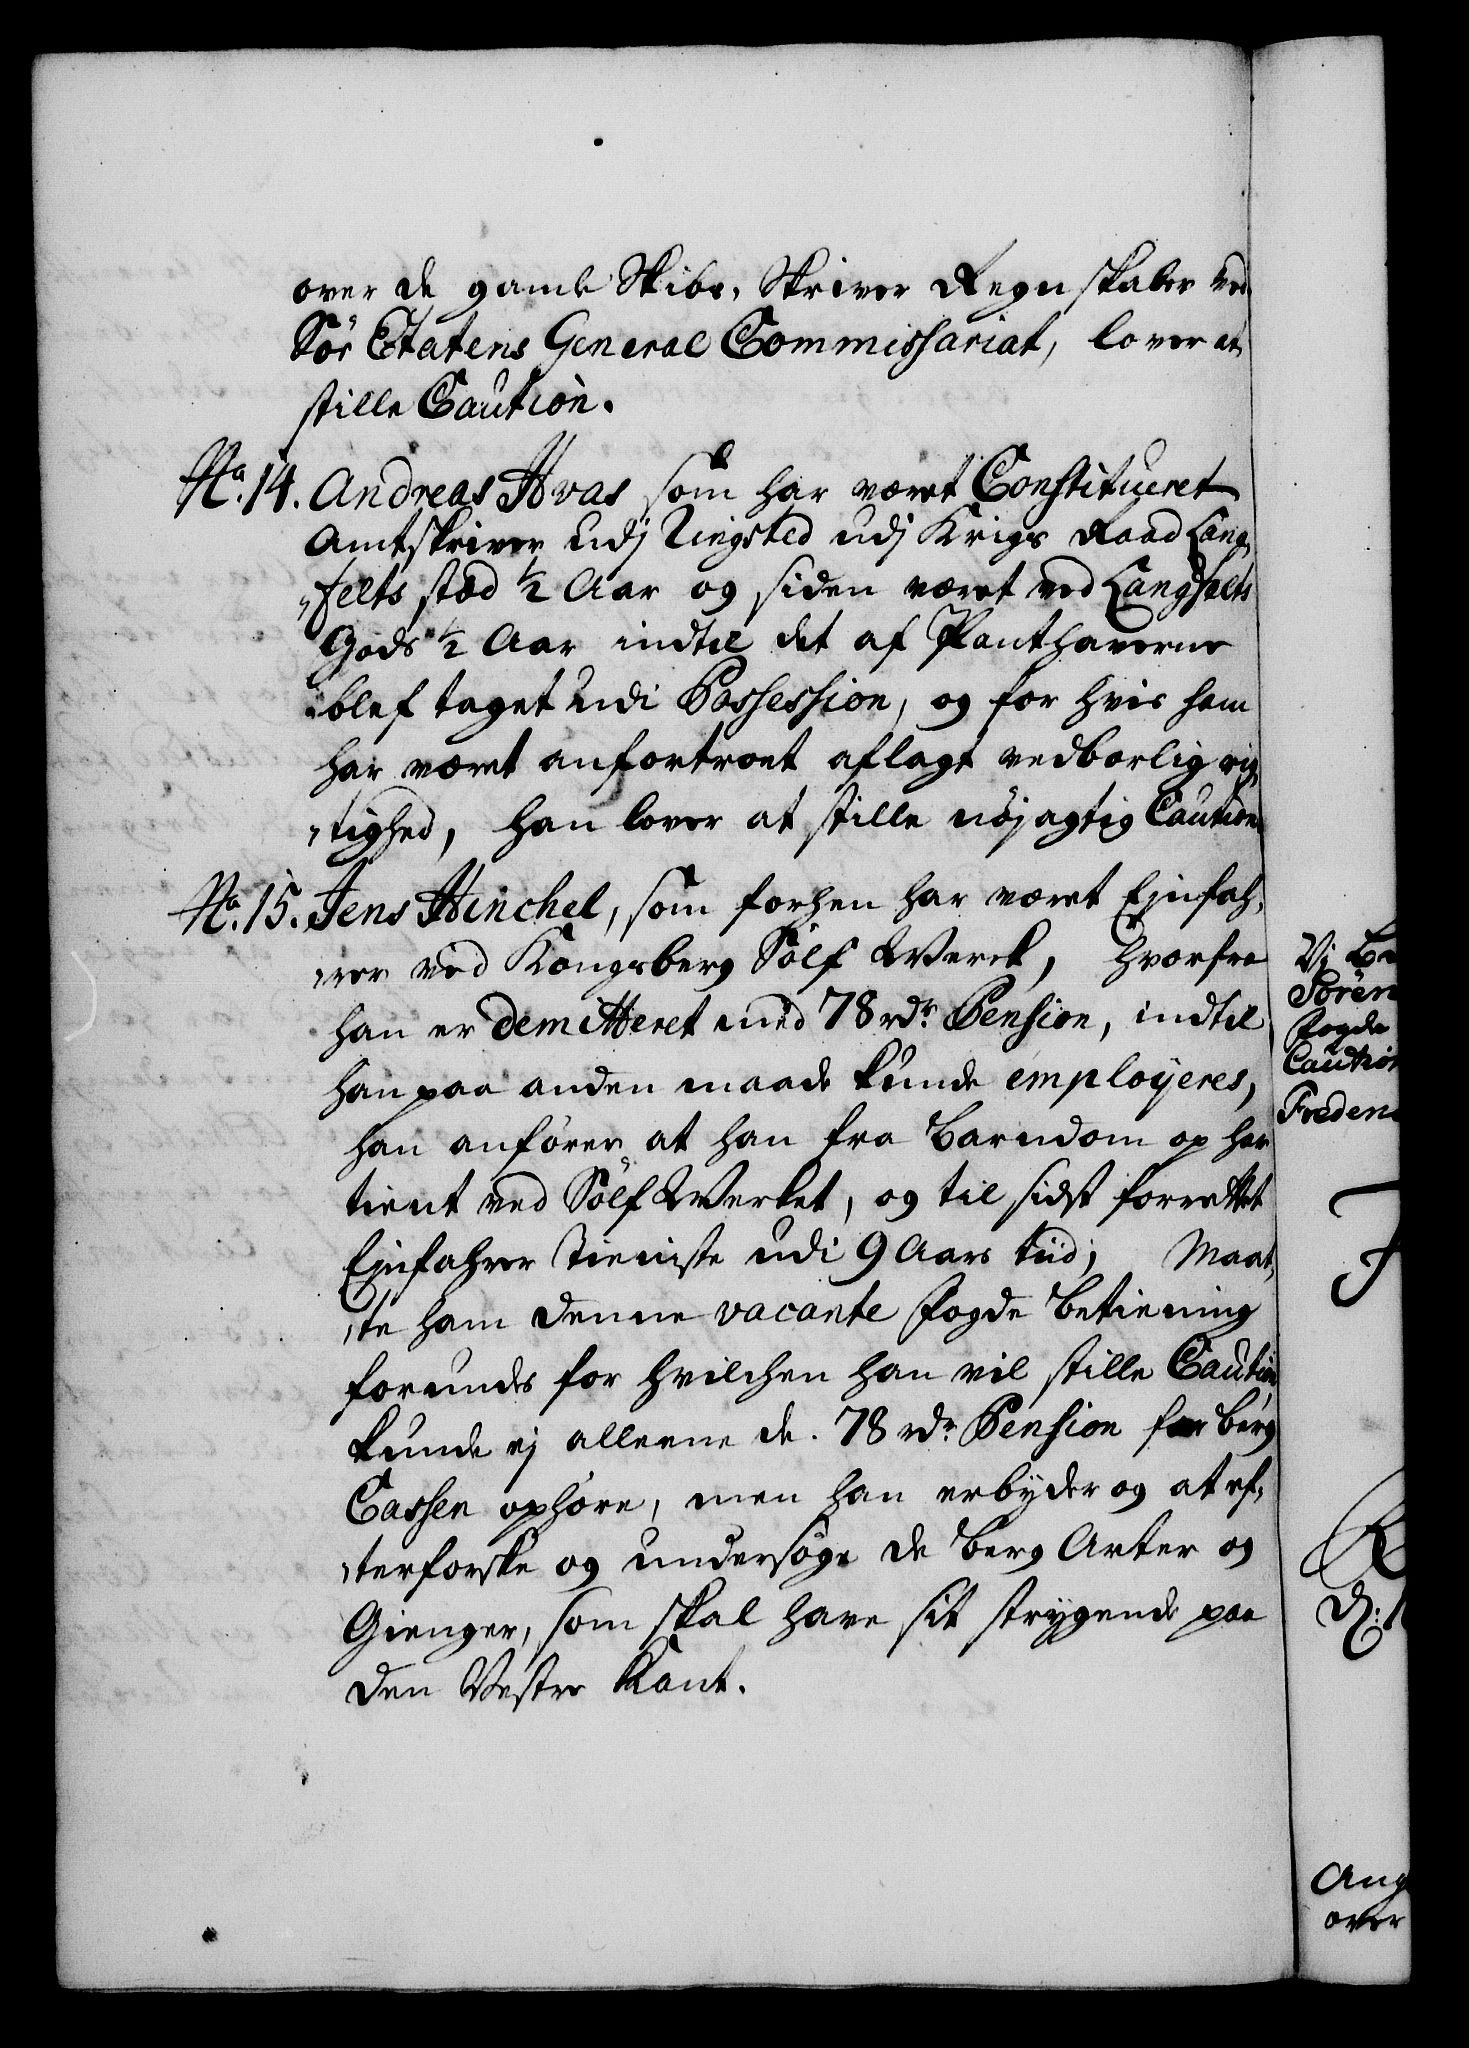 over de gamle Skibs, Skriver Regnskaber ved
Sör Etatens General Commissariat, lover at
stille Caution.
No. 14. Andreas Hvas som har været Constitueret
Amtskriver udj Ringsted udj Krigs Raad Lang,
„felts stæd ½ Aar og siden været ved Langfelts
Gods ½ Aar indtil det af Panthaverne
blef taget udi Possession, og for hvis ham
har været anfortroet aflagt vedborlig rig,
„tighed, han lover at stille nöjagtig Caution
No. 15. Jens Hinchel, som forhen har været Ejnfah,
„rer ved Kongsberg Sölf Werck, hvorfra
han er demitteret med 78 rdr. Pension, indtil
han paa anden maade kunde employeres,
han anförer at han fra Barndom op har
tient ved Sölf Werket, og til sidst forrettet
Ejnfahrer Tieniste udi 9 Aars tiid; Maat,
„te ham denne vacante Fogde betiening
forundes for hvilchen han vil stille Caution
kunde ej alleene de. 78 rdr. Pension for berg
Cassen ophöre, men han erbyder og at ef,
„terforske og undersöge de berg Arter og
Gienger, som skal have sit strygende paa
den Vestre Kant.
Vj
Sören
Fogde
Caution
Frideri
D:
Ang
over